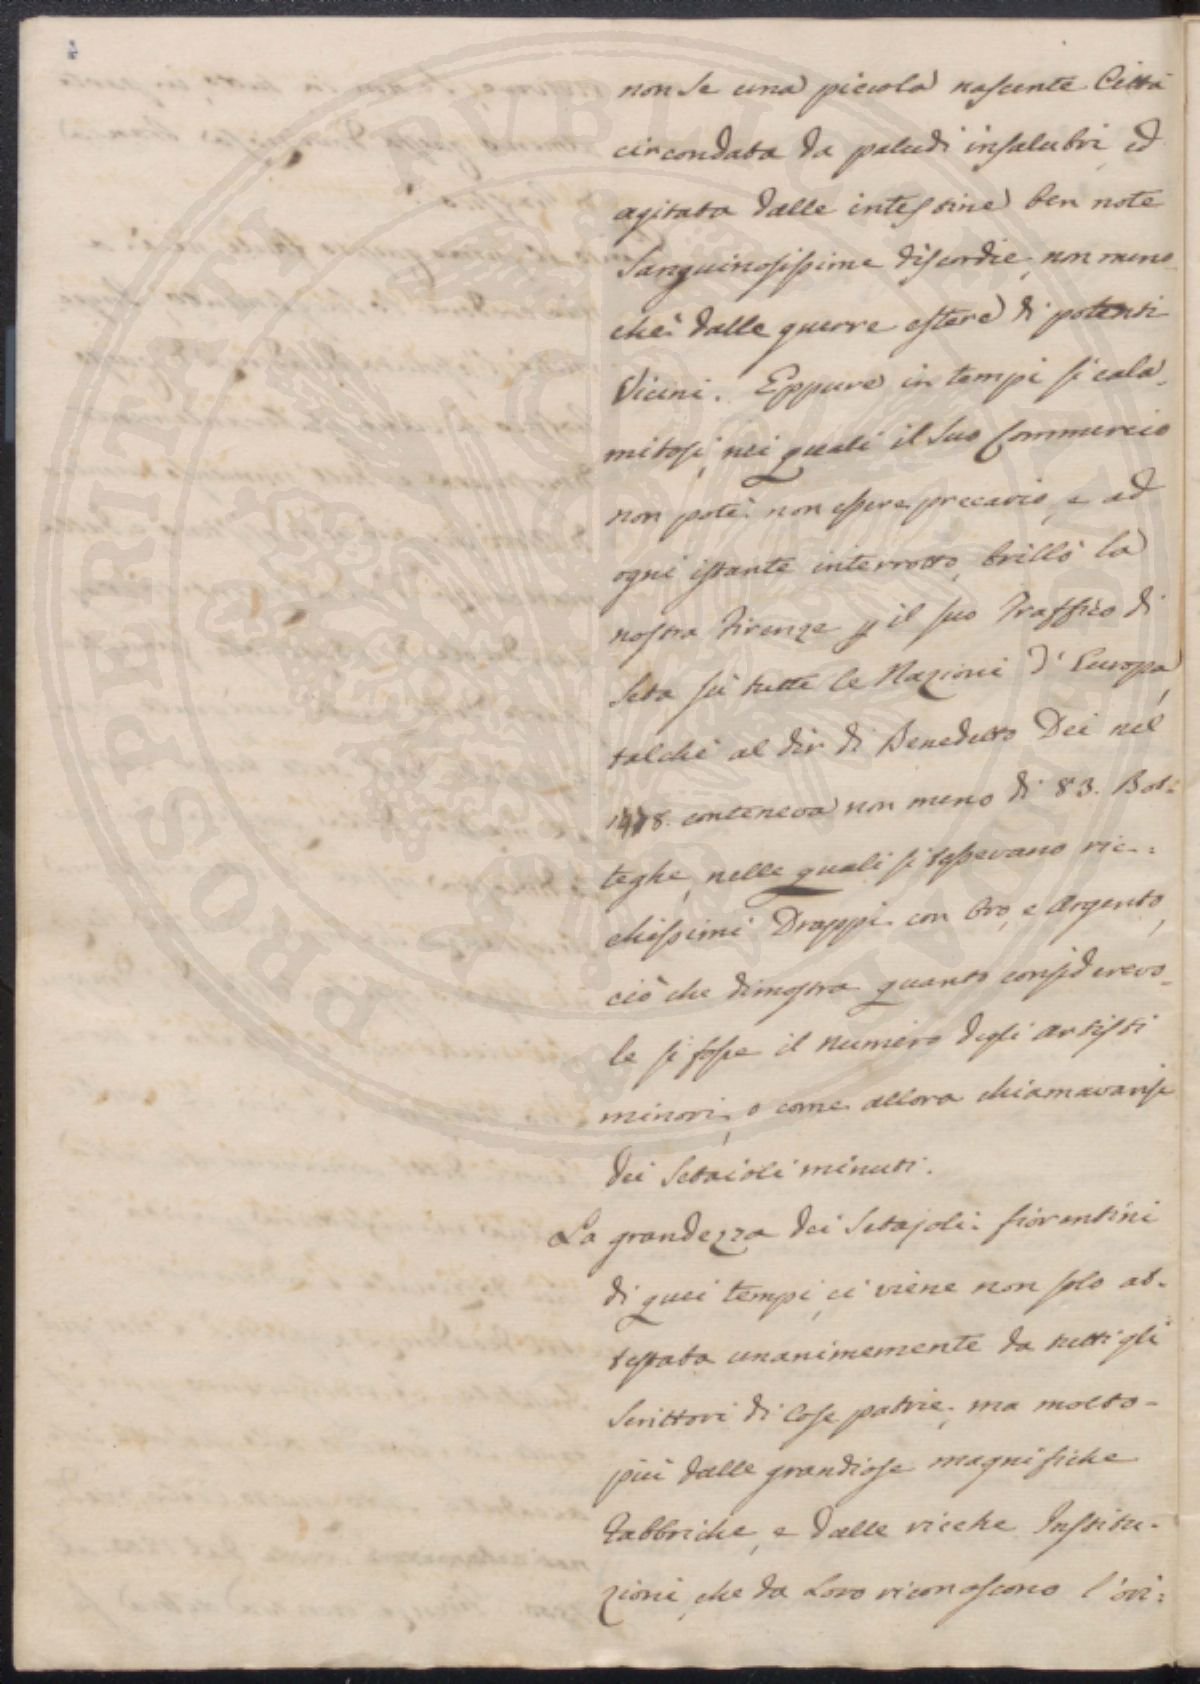 4
non se una piccola nascente Città
circondata da paludi insalubri, ed
agitata dalle intestine ben note
Sanguinosissime discordie, non meno
chè dalle guerre estere di potenti
Vicini. Eppure in tempi sì cala-
mitosi, nei quali il suo Commercio
non potè non essere precario, e ad
ogni istante interrotto, brillò la
nostra Firenze p il suo Traffico di
Seta sù tutte le Nazioni d'Europa,
talchè al dir di Benedetto Dei nel
1478. conteneva non meno di 83. Bot=
teghe, nelle quali si tessevano ric=
chissimi Drappi con Oro, e Argento,
ciò che dimostra quanto considerevo-
le si fosse il numero degli artisti
minori, o come allora chiamavansi
dei Setaioli minuti.
La grandezza dei Setajoli fiorentini
di quei tempi, ci viene non solo at-
testata unanimemente da tutti gli
Scrittori di Cose patrie, ma molto-
più dalle grandiose magnifiche
Fabbriche, e dalle ricche Institu-
zioni, che da Loro riconoscono l'ori=
PROSPERITATI PVBLICAE